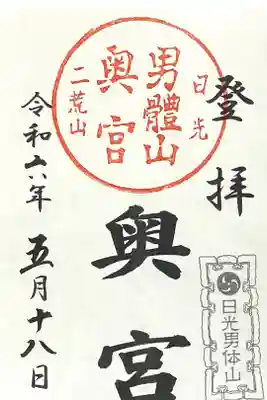 登拝
日光
男體山
奥宮
二荒山
奥宮
令和六年
五月十八日
日光男体山